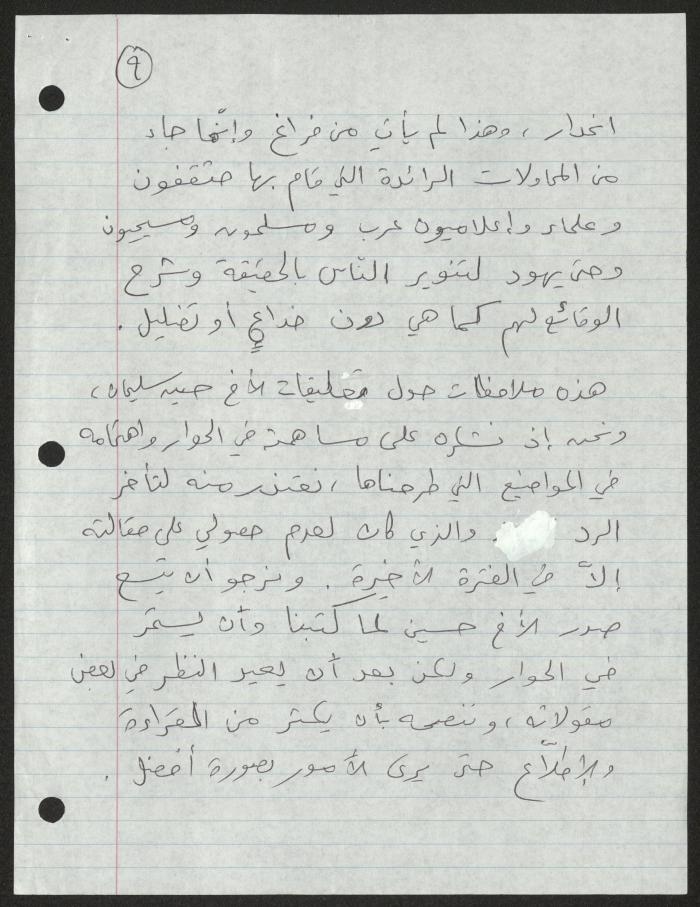 ٩
انحدار ، وهذا لم يأتِ من فراغ وإنّما جاء
من المحاولات الرائدة التي قام بها مثقفون
وعلماء وإعلاميون عرب ومسلمون ومسيحيون
وحتى يهود لتنوير النّاس بالحقيقة وشرح
الوقائع لهم كما هي دون خداعٍ أو تضليل .
هذه ملاحظات حول تعليقات الأخ حسين سليمان،
ونحن إذ نشكره على مساهمته في الحوار واهتمامه
في المواضيع التي طرحناها ، نعتذر منه لتأخر
الرد والذي كان لعدم حصولي على مقالته
إلاّ في الفترة الأخيرة . ونرجو أن يتسع
صدر الأخ حسين لما كتبنا وأن يستمرّ
في الحوار ولكن بعد أن يعيد النظر في بعض
مقولاته ، وننصحه بأن يكثر من القراءة
والإطلّاع حتى يرى الأمور بصورة أفضل .